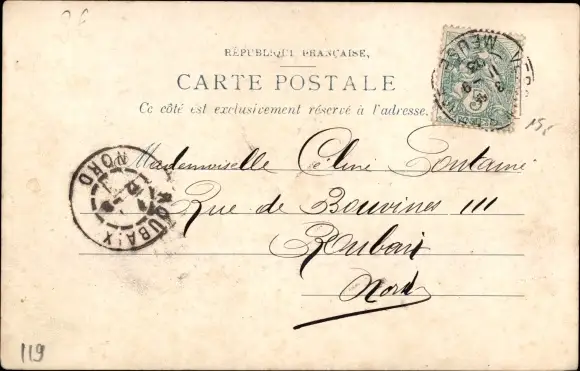 RÉPUBLIQUE FRANÇAISE,
CARTE POSTALE
Ce côté est exclusivement réservé à l'adresse.
MEUSE
ROUBAIX
NORD
Mademoiselle Céline Fontaine
Rue de Bouvines 111
Roubaix
Nord
119